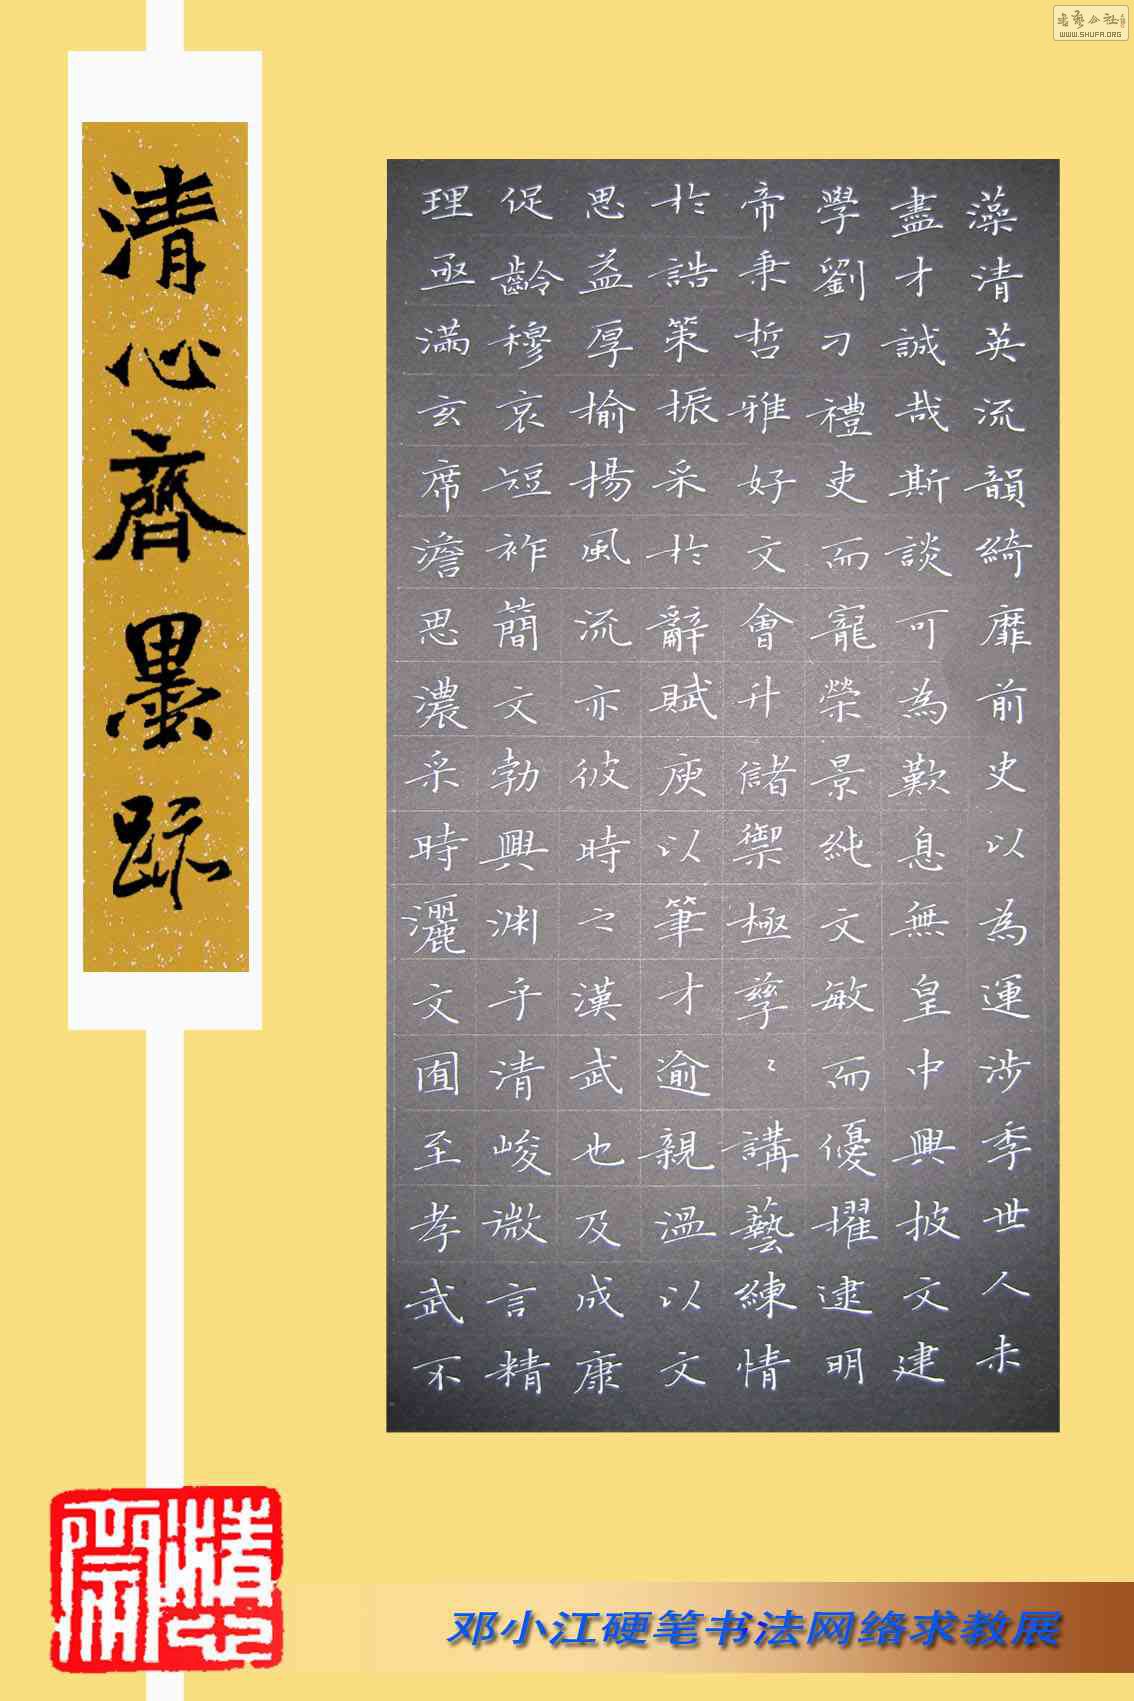 藻清英流韻綺靡前史以為運涉季世人未
盡才誠哉斯談可為歎息無皇中興披文建
學劉刁禮吏而寵榮景純文敏而優擢逮明
帝秉哲雅好文會升儲禦極孳〻講藝練情
於誥策振采於辭賦庾以筆才逾親溫以文
思益厚揄揚風流亦彼時之漢武也及成康
促齡穆哀短祚簡文勃興渊乎清峻微言精
理亟滿玄席澹思濃采時灑文囿至孝武不
清心齋墨跡
清心齋
邓小江硬笔书法网络求教展
WWW.SHUFA.ORG